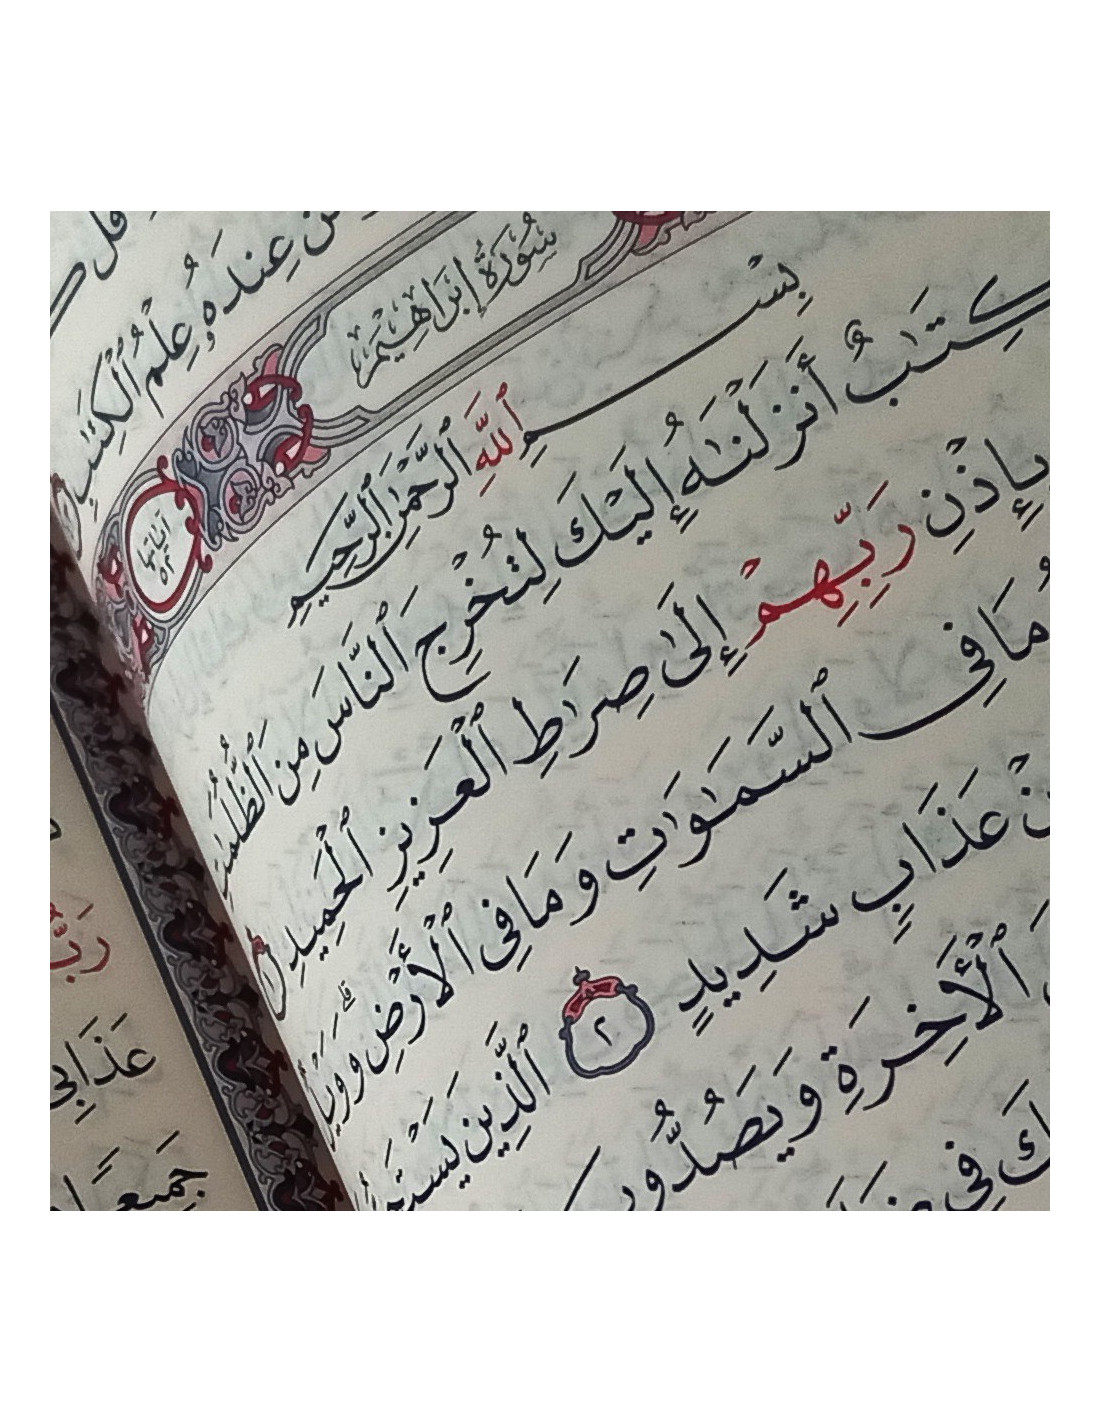 عِندَهُۥ عِلْمُ ٱلْكِتَٰبِ
سُورَةُ إِبْرَاهِيمَ
آيَاتُهَا ٥٢
بِسْمِ ٱللَّهِ ٱلرَّحْمَٰنِ ٱلرَّحِيمِ
كِتَٰبٌ أَنزَلْنَٰهُ إِلَيْكَ لِتُخْرِجَ ٱلنَّاسَ مِنَ ٱلظُّلُمَٰتِ
بِإِذْنِ رَبِّهِمْ إِلَىٰ صِرَٰطِ ٱلْعَزِيزِ ٱلْحَمِيدِ ١
مَا فِى ٱلسَّمَٰوَٰتِ وَمَا فِى ٱلْأَرْضِ ۗ
عَذَابٍ شَدِيدٍ ٢ ٱلَّذِينَ
ٱلْأَخِرَةِ وَيَصُدُّونَ
فِى
عَذَابِى
جَمِيعًا